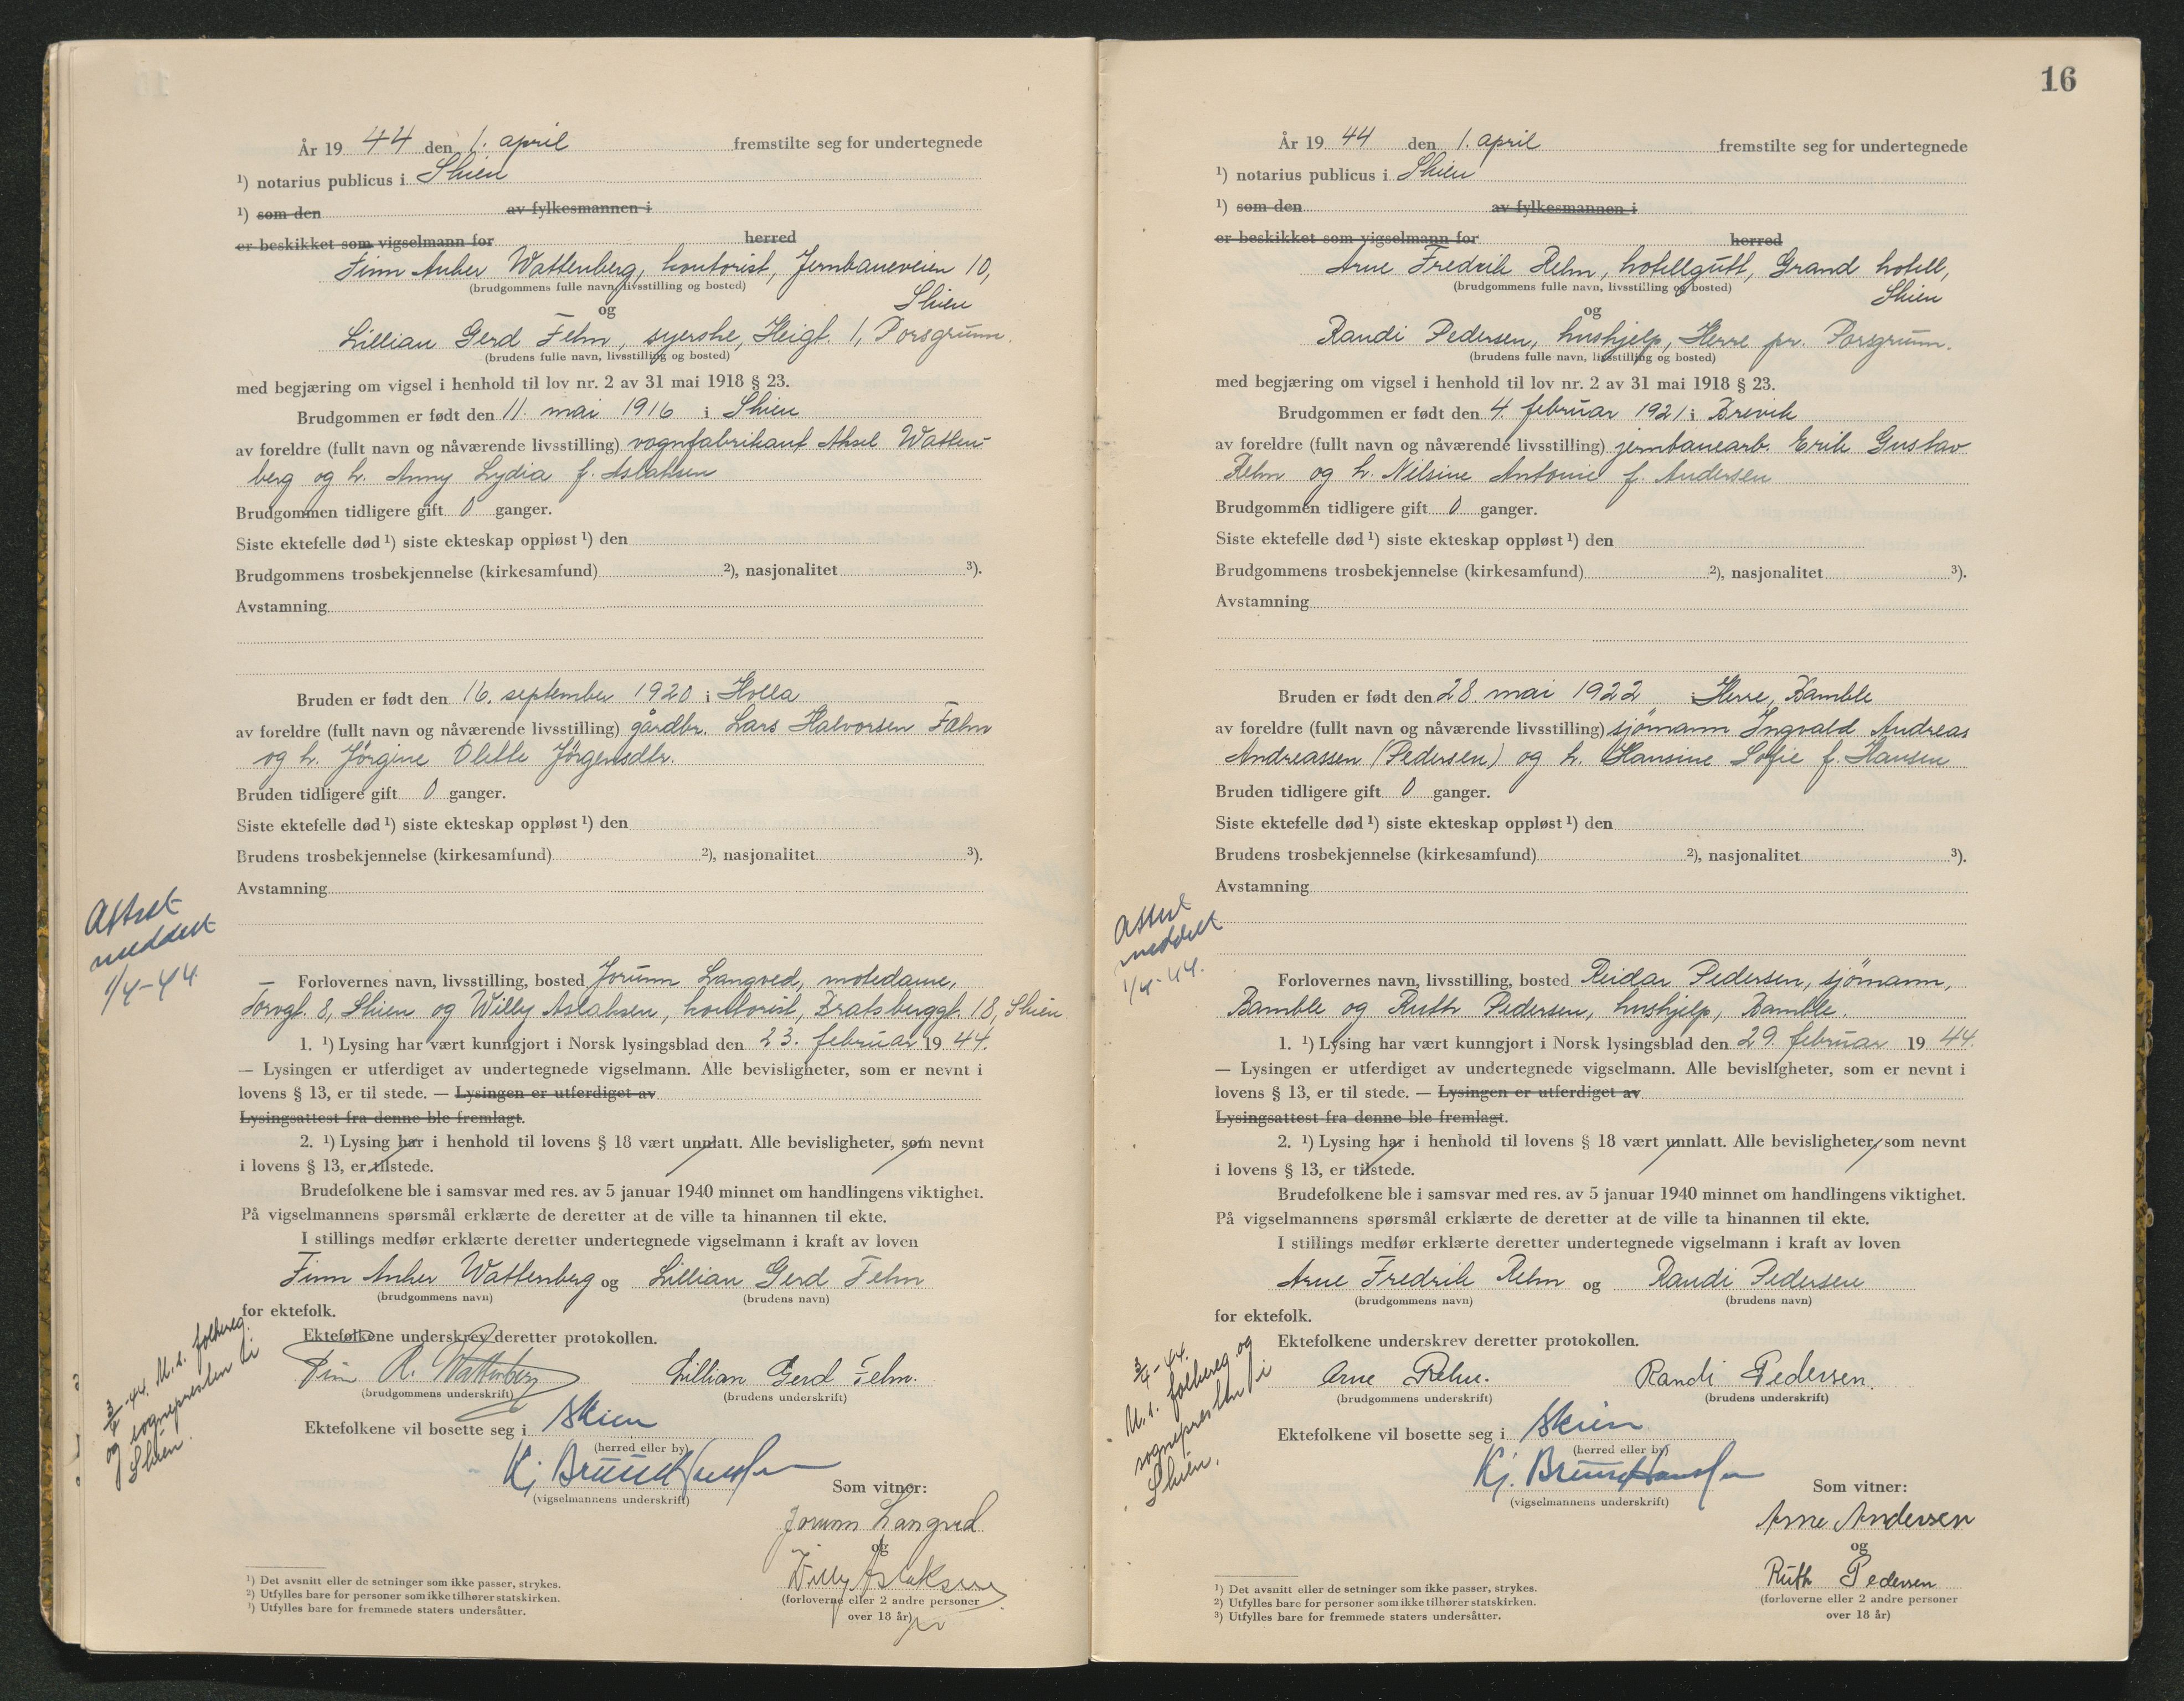 År 19 44 den 1. april fremstilte seg for undertegnede
¹) notarius publicus i Skien
¹) som den av fylkesmannen i
er beskikket som vigselmann for herred
Finn Anker Wattenberg, kontorist, Jernbaneveien 10,
(brudgommens fulle navn, livsstilling og bosted)
Skien
og
Lillian Gerd Felm, syerske, Heigt. 1, Porsgrunn.
(brudens fulle navn, livsstilling og bosted)
med begjæring om vigsel i henhold til lov nr. 2 av 31 mai 1918 § 23.
Brudgommen er født den 11. mai 1916 i Skien
av foreldre (fullt navn og nåværende livsstilling) vognfabrikant Aksel Watten-
berg og h. Anny Lydia f. Aslaksen
Brudgommen tidligere gift 0 ganger.
Siste ektefelle død ¹) siste ekteskap oppløst ¹) den
Brudgommens trosbekjennelse (kirkesamfund) ²), nasjonalitet ³).
Avstamning
Bruden er født den 16. september 1920 i Holla
av foreldre (fullt navn og nåværende livsstilling) gårdbr. Lars Halvorsen Fælm
og h. Jörgine Olette Jörgensdtr.
Bruden tidligere gift 0 ganger.
Siste ektefelle død ¹) siste ekteskap oppløst ¹) den
Brudens trosbekjennelse (kirkesamfund) ²), nasjonalitet ³).
Avstamning
Attest
meddelt
1/4-44.
Forlovernes navn, livsstilling, bosted Jorunn Langved, motedame,
Torvgt. 8, Skien og Willy Aslaksen, kontorist, Bratsberggt. 18, Skien
1. ¹) Lysing har vært kunngjort i Norsk lysingsblad den 23. februar 19 44.
— Lysingen er utferdiget av undertegnede vigselmann. Alle bevisligheter, som er nevnt i
lovens § 13, er til stede. — Lysingen er utferdiget av
Lysingsattest fra denne ble fremlagt.
2. ¹) Lysing har i henhold til lovens § 18 vært unnlatt. Alle bevisligheter, som nevnt
i lovens § 13, er tilstede.
Brudefolkene ble i samsvar med res. av 5 januar 1940 minnet om handlingens viktighet.
På vigselmannens spørsmål erklærte de deretter at de ville ta hinannen til ekte.
I stillings medfør erklærte deretter undertegnede vigselmann i kraft av loven
Finn Anker Wattenberg og Lillian Gerd Felm
(brudgommens navn) (brudens navn)
for ektefolk.
Ektefolkene underskrev deretter protokollen.
Finn A. Wattenberg Lillian Gerd Felm.
(brudgommens underskrift) (brudens underskrift)
3/4-44. M.s. folkereg.
og sognepresten i
Skien.
Ektefolkene vil bosette seg i Skien
(herred eller by)
Kj. Bruusehansen
(vigselmannens underskrift)
Som vitner:
Jorunn Langved
og
Willy Aslaksen
(forloverne eller 2 andre personer
over 18 år)
¹) Det avsnitt eller de setninger som ikke passer, strykes.
²) Utfylles bare for personer som ikke tilhører statskirken.
³) Utfylles bare for fremmede staters undersåtter.
16
År 19 44 den 1. april fremstilte seg for undertegnede
¹) notarius publicus i Skien
¹) som den av fylkesmannen i
er beskikket som vigselmann for herred
Arne Fredrik Relm, hotellgutt, Grand hotell,
(brudgommens fulle navn, livsstilling og bosted)
Skien
og
Randi Pedersen, hushjelp, Herre pr. Porsgrunn.
(brudens fulle navn, livsstilling og bosted)
med begjæring om vigsel i henhold til lov nr. 2 av 31 mai 1918 § 23.
Brudgommen er født den 4. februar 1921 i Brevik
av foreldre (fullt navn og nåværende livsstilling) jernbanearb. Erik Gustav
Relm og h. Nilsine Antonie f. Andersen
Brudgommen tidligere gift 0 ganger.
Siste ektefelle død ¹) siste ekteskap oppløst ¹) den
Brudgommens trosbekjennelse (kirkesamfund) ²), nasjonalitet ³).
Avstamning
Bruden er født den 28. mai 1922 i Herre, Bamble
av foreldre (fullt navn og nåværende livsstilling) sjömann Ingvald Andreas
Andreassen (Pedersen) og h. Hansine Sofie f. Hansen
Bruden tidligere gift 0 ganger.
Siste ektefelle død ¹) siste ekteskap oppløst ¹) den
Brudens trosbekjennelse (kirkesamfund) ²), nasjonalitet ³).
Avstamning
Attest
meddelt
1/4-44.
Forlovernes navn, livsstilling, bosted Reidar Pedersen, sjömann,
Bamble og Ruth Pedersen, hushjelp, Bamble.
1. ¹) Lysing har vært kunngjort i Norsk lysingsblad den 29. februar 19 44.
— Lysingen er utferdiget av undertegnede vigselmann. Alle bevisligheter, som er nevnt i
lovens § 13, er til stede. — Lysingen er utferdiget av
Lysingsattest fra denne ble fremlagt.
2. ¹) Lysing har i henhold til lovens § 18 vært unnlatt. Alle bevisligheter, som nevnt
i lovens § 13, er tilstede.
Brudefolkene ble i samsvar med res. av 5 januar 1940 minnet om handlingens viktighet.
På vigselmannens spørsmål erklærte de deretter at de ville ta hinannen til ekte.
I stillings medfør erklærte deretter undertegnede vigselmann i kraft av loven
Arne Fredrik Relm og Randi Pedersen
(brudgommens navn) (brudens navn)
for ektefolk.
Ektefolkene underskrev deretter protokollen.
Arne Relm. Randi Pedersen.
(brudgommens underskrift) (brudens underskrift)
3/4-44.
M.s. folkereg. og
sognepresten i
Skien.
Ektefolkene vil bosette seg i Skien
(herred eller by)
(vigselmannens underskrift)
Som vitner:
Arne Andersen
og
Ruth Pedersen
(forloverne eller 2 andre personer
over 18 år)
¹) Det avsnitt eller de setninger som ikke passer, strykes.
²) Utfylles bare for personer som ikke tilhører statskirken.
³) Utfylles bare for fremmede staters undersåtter.